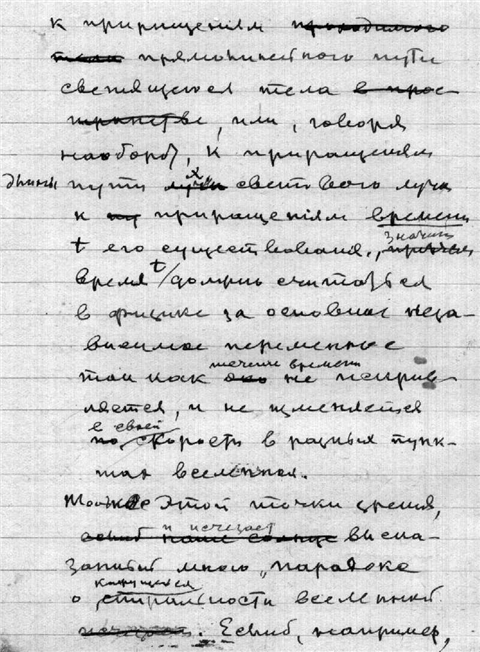 к приращеніям проходимого
тела прямолинейного пути
светящегося тела в прос-
транстве, или, говоря
наоборот, к приращениям
длины пути луча светового луча
к приращеніям времени
t его существования., значит
время t должно считаться
в физике за основное неза-
висимое переменное
так как течение времени не искрив-
ляется, и не изменяется
в своей скорость в разных пунк-
тах вселенной.
Тоже этой точки зрения,
и исчезает выска-
занный мною „парадокс
о кажущейся спиральности вселенной
. Если б, например,